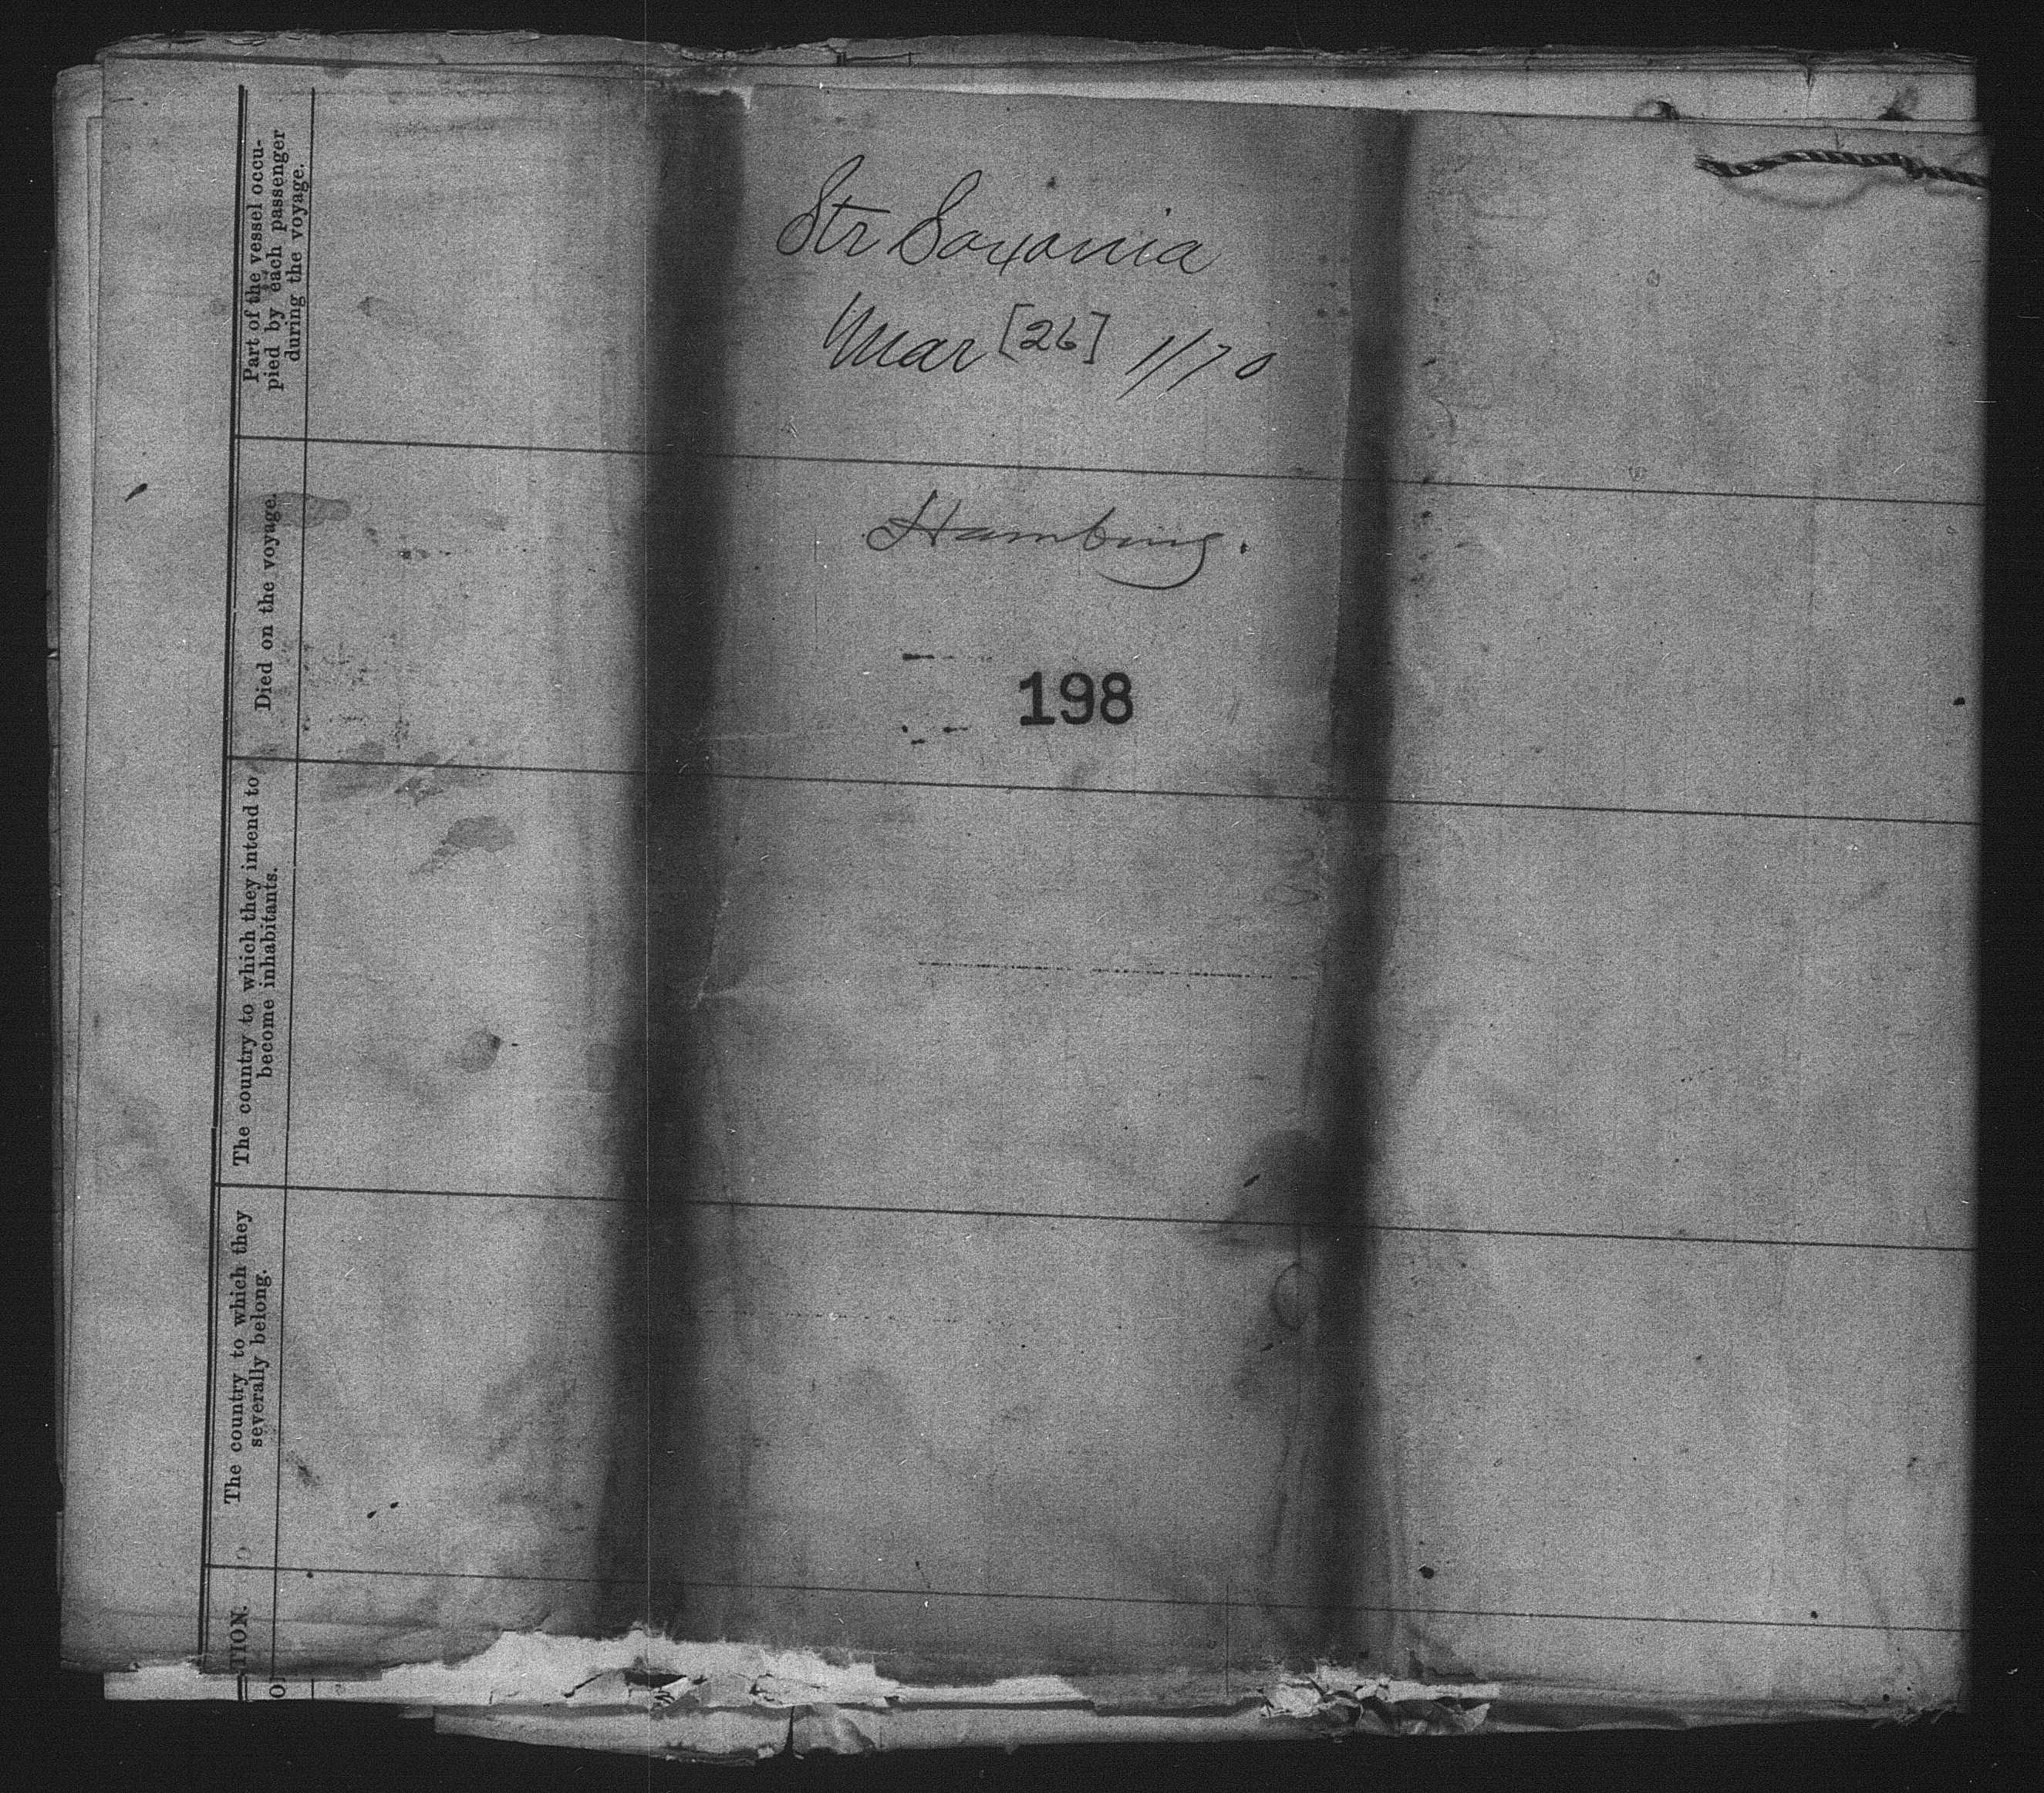 Str Saxonia
Mar [26] 1/70
Hamburg.
198
Part of the vessel occu-
pied by each passenger
during the voyage.
Died on the voyage.
The country to which they intend to
become inhabitants.
The country to which they
severally belong.
TION.